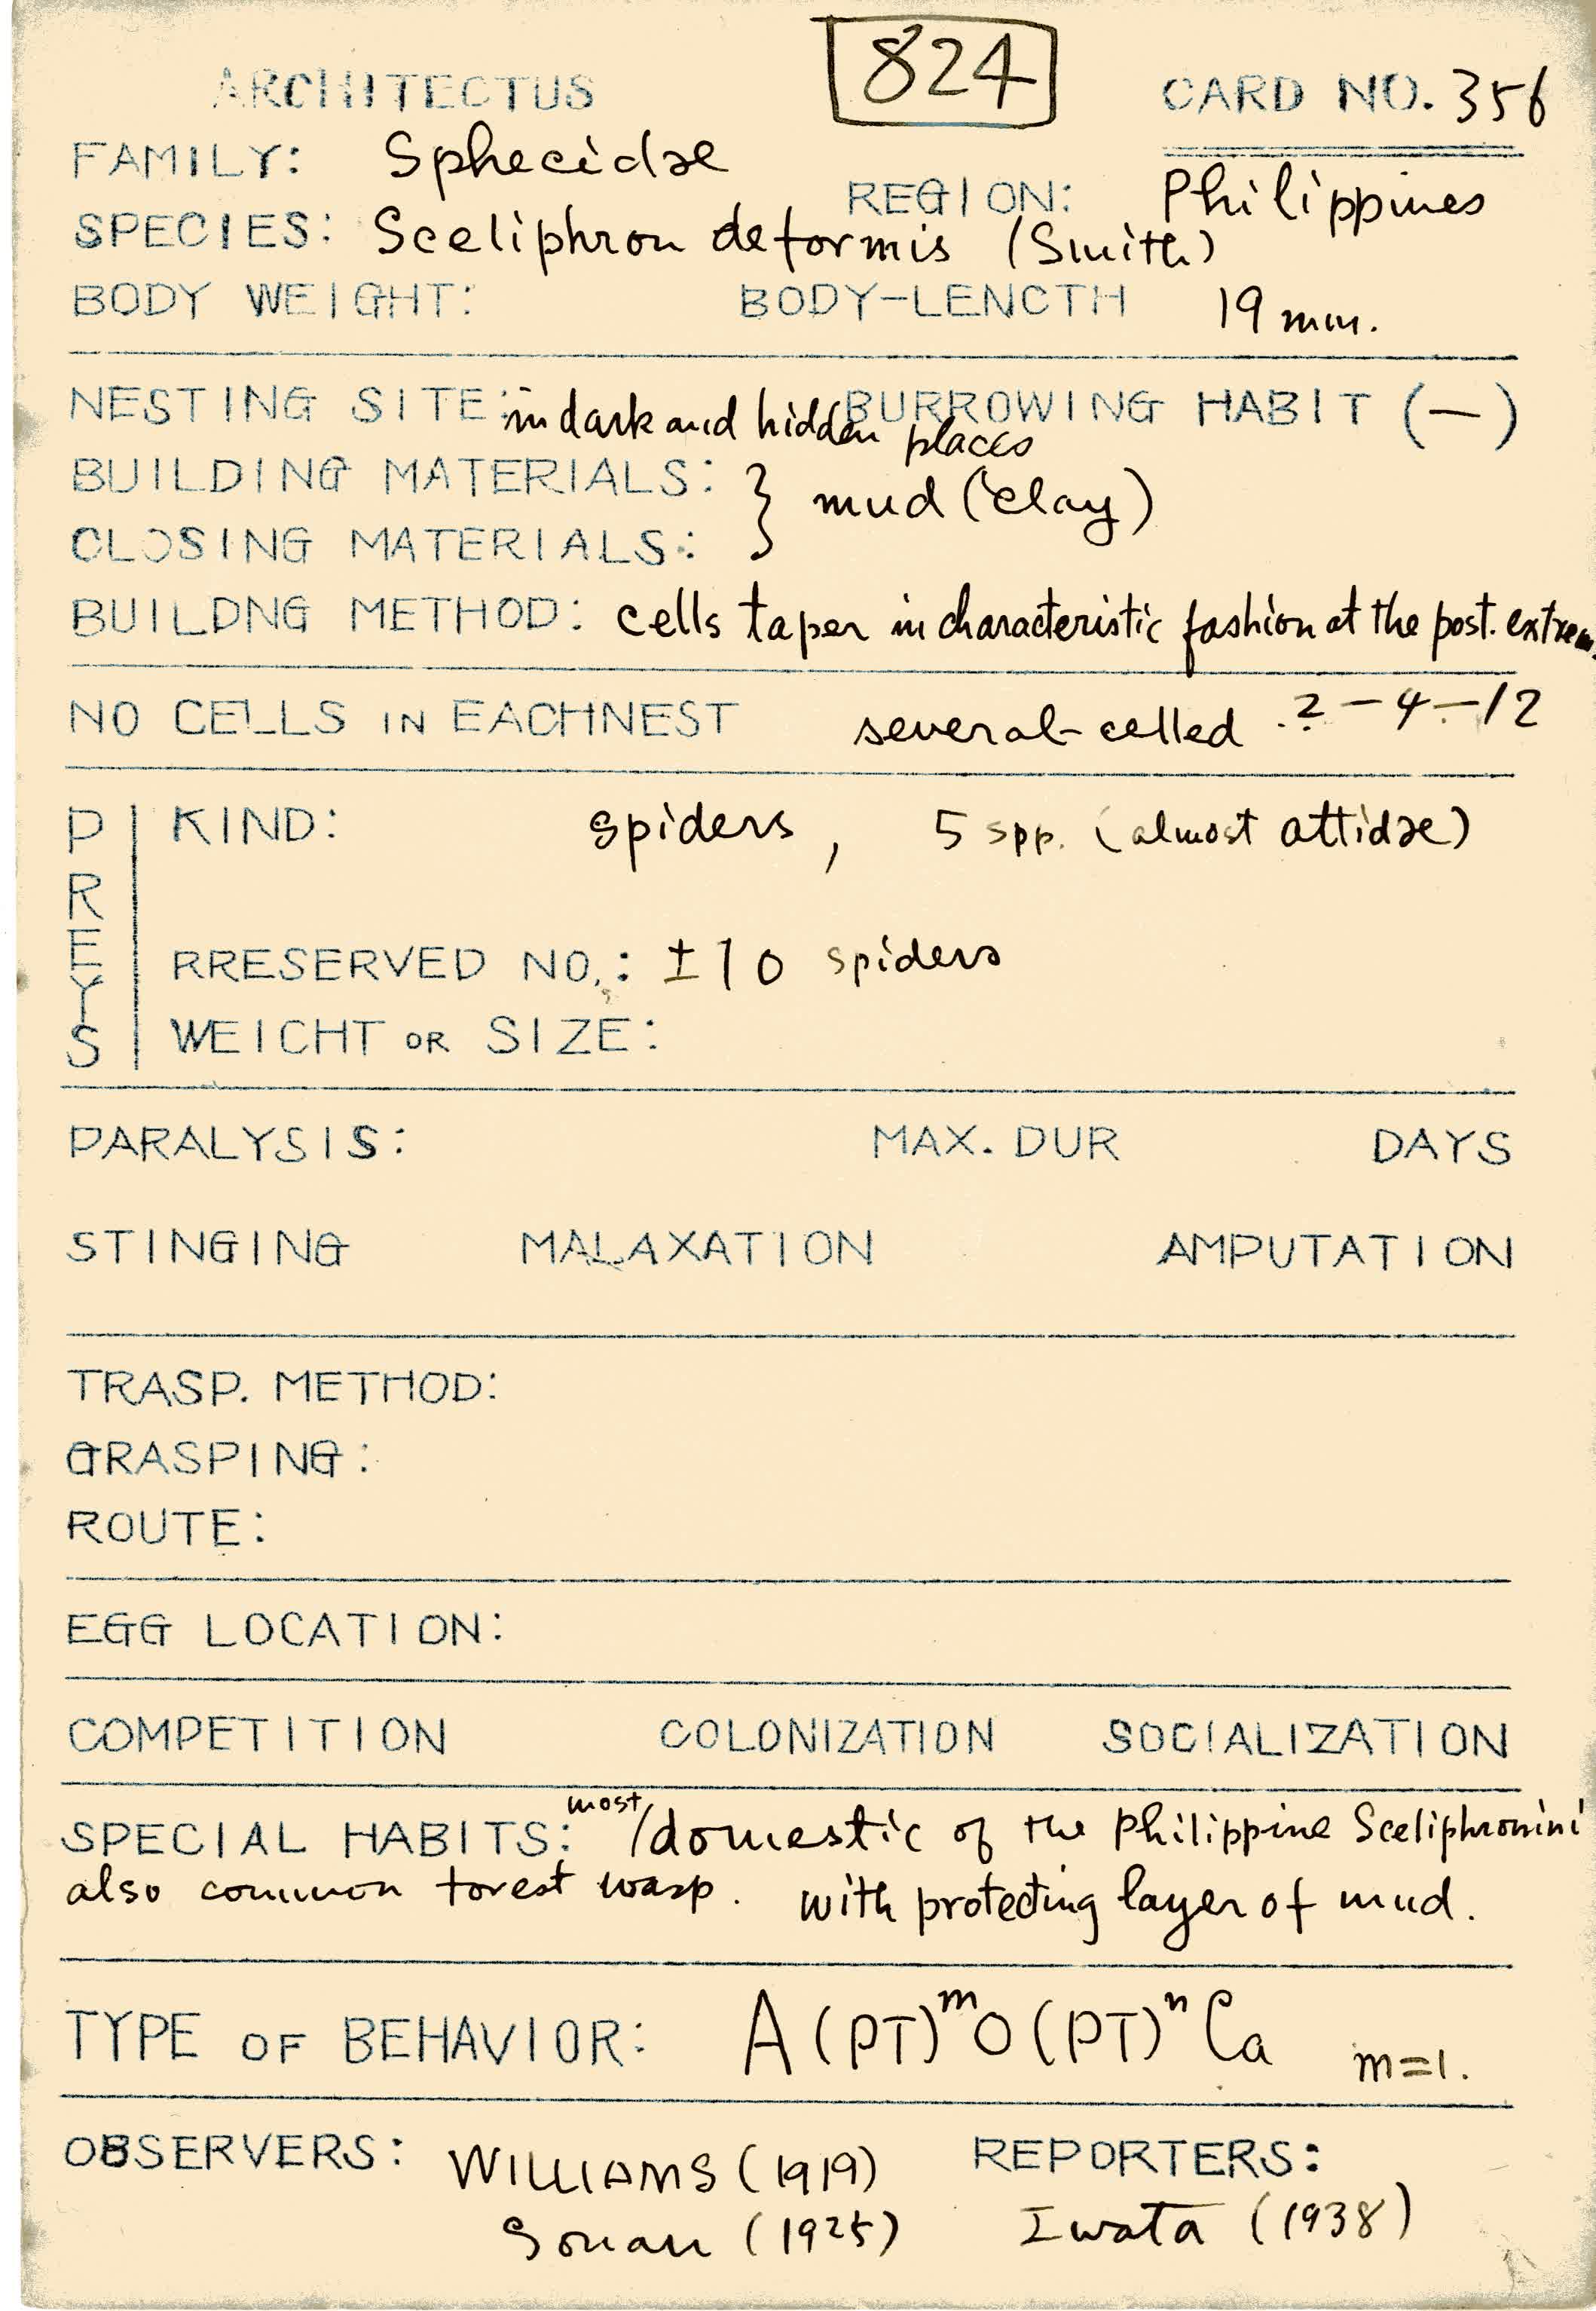 824
ARCHITECTUS CARD NO. 356
FAMILY: Sphecidae
REGION: Philippines
SPECIES: Sceliphron deformis (Smith)
BODY WEIGHT: BODY-LENCTH 19 mm.
NESTING SITE: in dark and hidden places BURROWING HABIT (—)
BUILDING MATERIALS: } mud (clay)
CLOSING MATERIALS:
BUILDNG METHOD: cells taper in characteristic fashion at the post. extrem.
NO CELLS IN EACHNEST several-celled 2-4-12
PREYS
KIND: spiders, 5 spp. (almost attidae)
RRESERVED NO.: ±10 spiders
WEICHT OR SIZE:
PARALYSIS: MAX. DUR DAYS
STINGING MALAXATION AMPUTATION
TRASP. METHOD:
GRASPING:
ROUTE:
EGG LOCATION:
COMPETITION COLONIZATION SOCIALIZATION
SPECIAL HABITS: most domestic of the Philippine Sceliphronini
also common forest wasp. with protecting layer of mud.
TYPE OF BEHAVIOR: A(PT)ᵐO(PT)ⁿCa m=1.
OBSERVERS: WILLIAMS (1919) REPORTERS:
Sonan (1925) Iwata (1938)